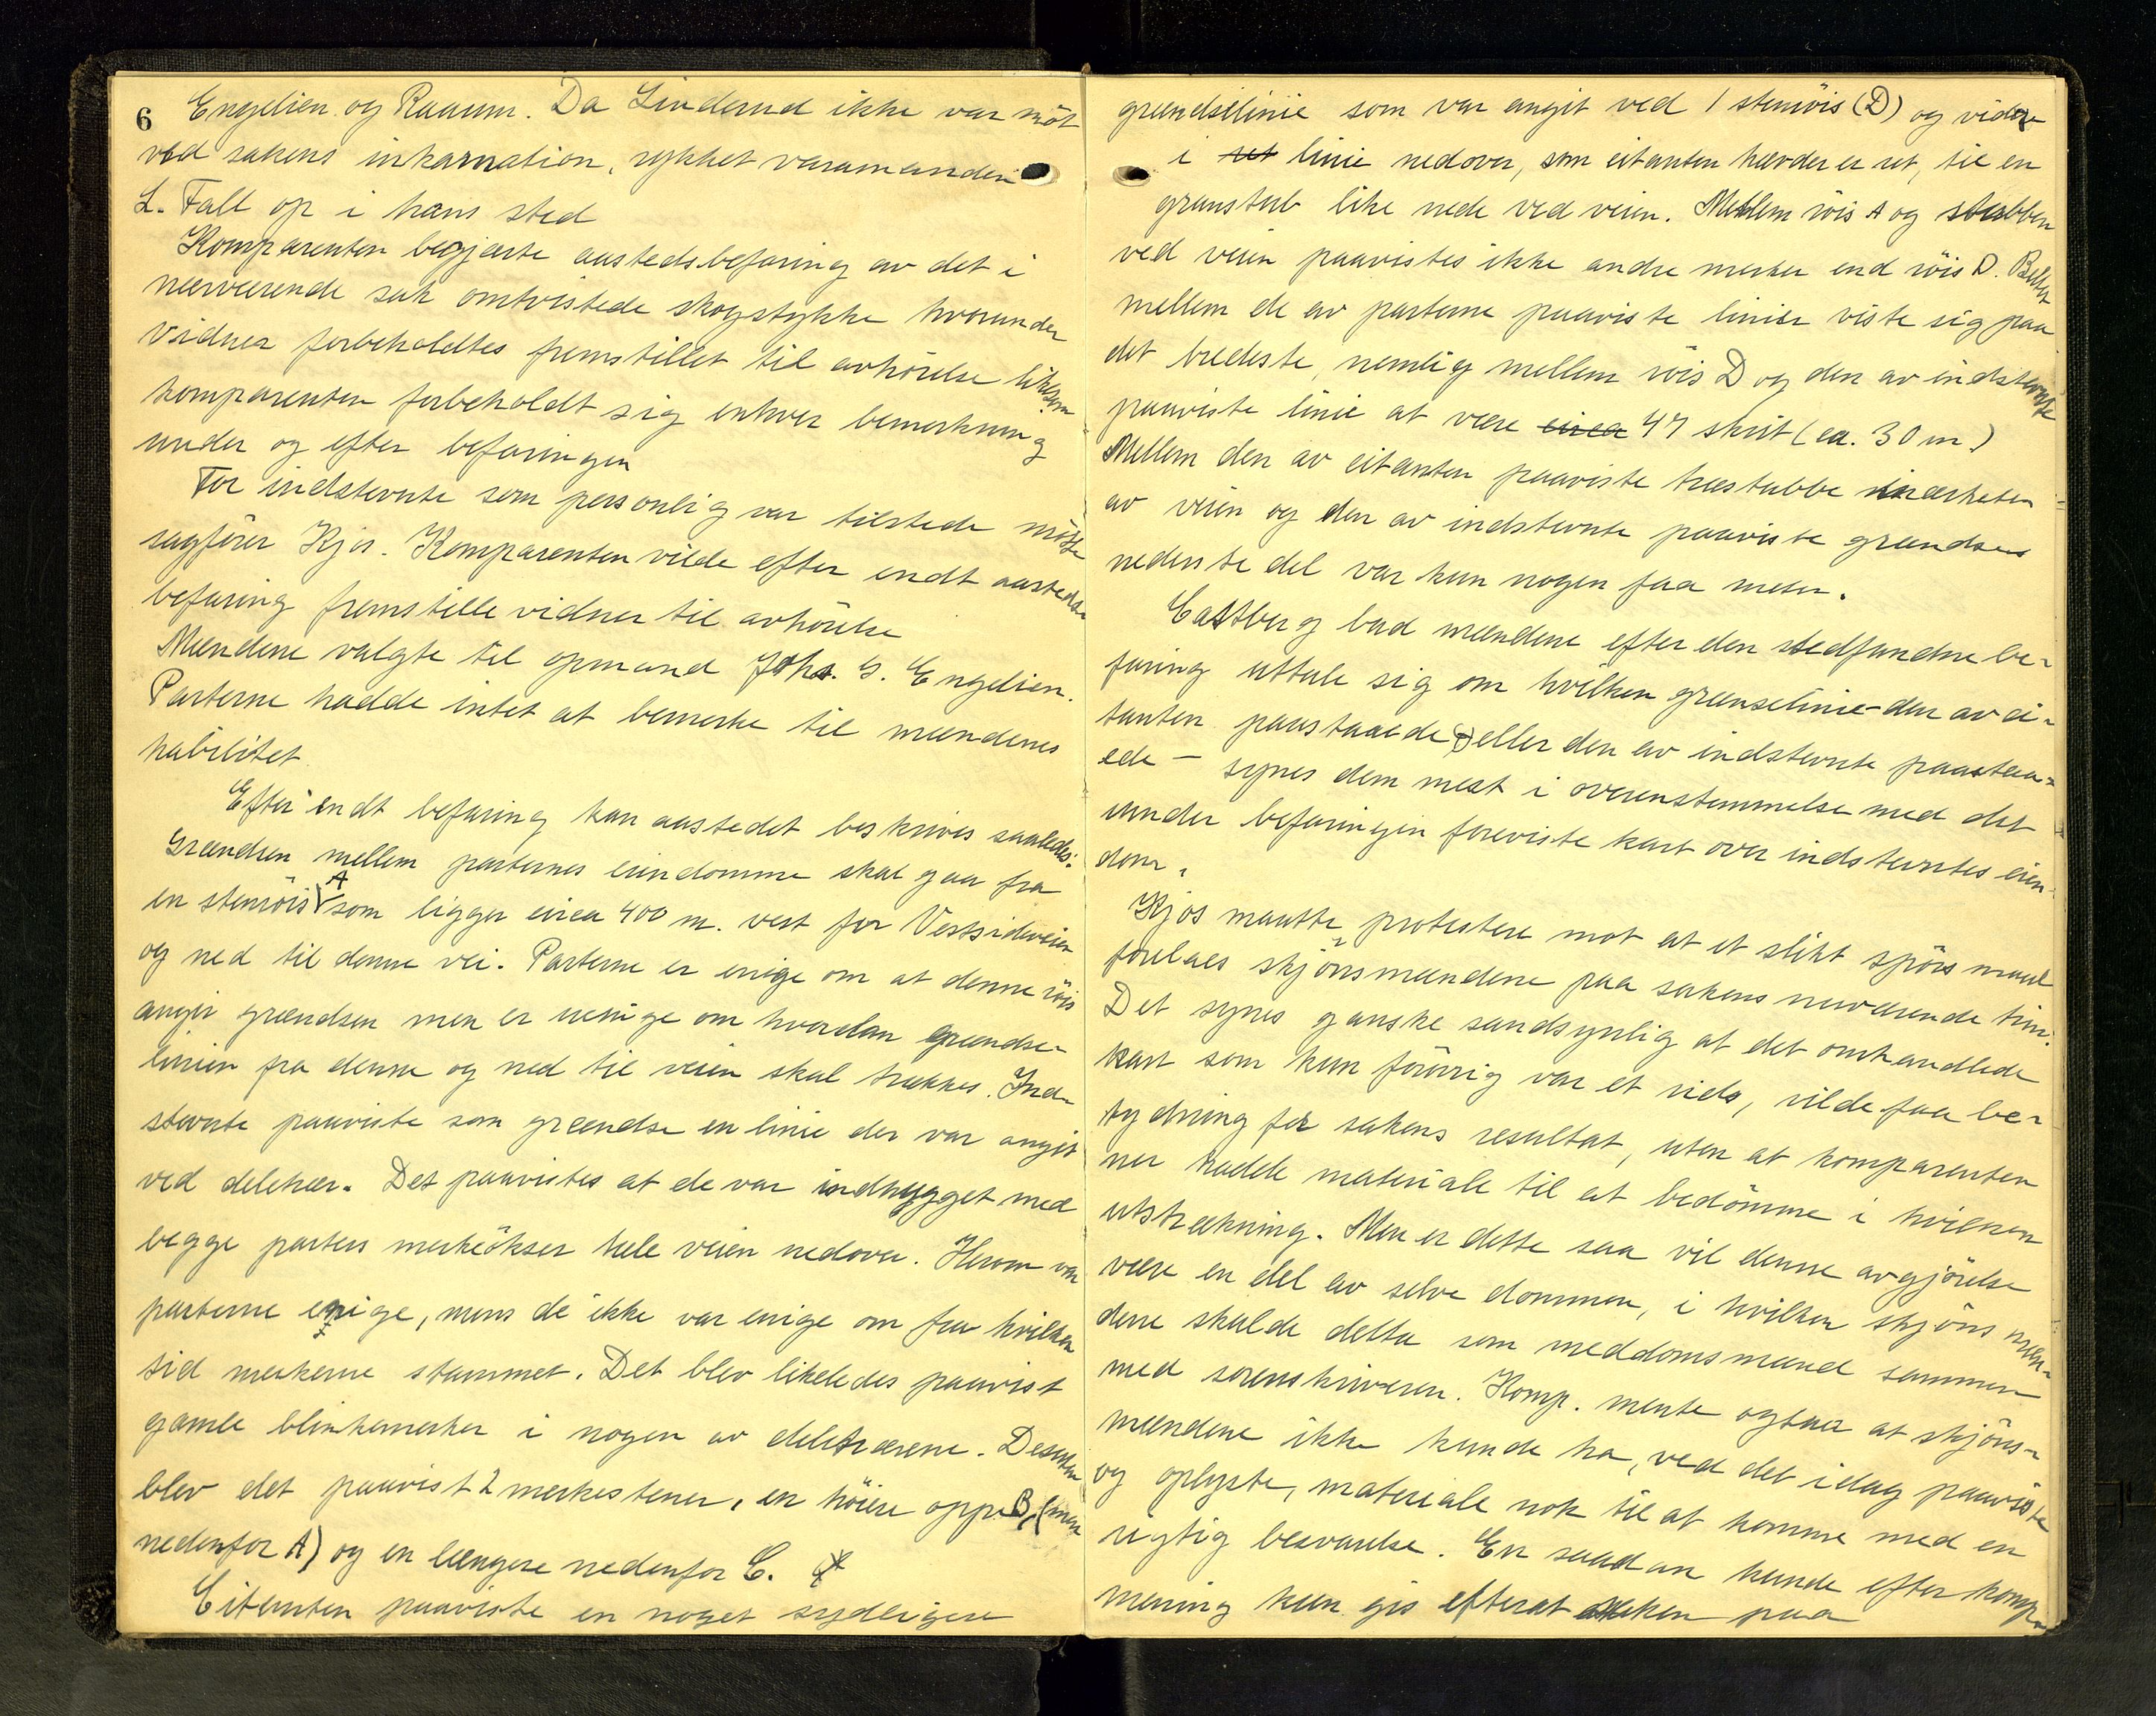 6 Engelien og Raaum. Da Linderud ikke var møt
ved sakens inkamation, rykket varamanden
L. Fall op i hans sted
Komparenten begjærte aastedsbefaring av det i
nærværende sak omtvistede skogstykke hvorunder
vidner forbeholdtes fremstillet til avhörelse likesom
komparenten forbeholdt sig enhver bemerkning
under og efter befaringen
For indstevnte som personlig var tilstede mötte
sagförer Kjos. Komparenten vilde efter endt aasteds-
befaring fremstille vidner til avhörelse
Mændene valgte til opmand Johs. G. Engelien.
Parterne hadde intet at bemerke til mændenes
habilitet
Efter endt befaring kan aastedet beskrives saaledes:
Grændsen mellem parternes eiendomme skal gaa fra
en stenröis A som ligger circa 400 m. vest for Vestsideveien
og ned til denne vei. Parterne er enige om at denne röis
angir grændsen men er uenige om hvordan grændse-
linien fra denne og ned til veien skal trækkes. Ind-
stevnte paaviste som grændse en linie der var angit
ved deletrær. Det paavistes at de var indhygget med
begge parters merkeökser hele veien nedover. Herom var
parterne enige, mens de ikke var enige om fra hvilken
tid merkerne stammet. Det blev likeledes paavist
gamle blinkemerker i nogen av deletrærene. Desuten
blev det paavist 2 merkestener, en höiere oppe B, (men
nedenfor A) og en længere nedenfor C.
Citanten paaviste en noget sydligere
grændselinie som var angit ved 1 stenröis (D) og videre
i ret linie nedover, som citanten hævder er ret, til en
granstub like nede ved veien. Mellem röis A og stubben
ved veien paavistes ikke andre merker end röis D. Beltet
mellem de av parterne paaviste linier viste sig paa
det bredeste, nemlig mellem röis D og den av indstevnte
paaviste linie at være circa 47 skrit (ca. 30 m.)
Mellem den av citanten paaviste træstubbe i nærheten
av veien og den av indstevnte paaviste grændses
nederste del var kun nogen faa meter.
Castberg bad mændene efter den stedfundne be-
faring uttale sig om hvilken grænselinie - den av ci-
tanten paastaaede eller den av indstevnte paastaa-
ede - synes dem mest i overenstemmelse med det
under befaringen foreviste kart over indstevntes eien-
dom.
Kjos maatte protestere mot at et slikt spörsmaal
forelaes skjönsmændene paa sakens nuværende trin.
Det synes ganske sandsynlig at det omhandlede
kart som kun förövrig var et rids, vilde faa be-
tydning for sakens resultat, uten at komparenten
nu hadde materiale til at bedömme i hvilken
utstrækning. Men er dette saa vil denne avgjörelse
være en del av selve dommen, i hvilken skjönsmæn-
dene skulde delta som meddomsmænd sammen
med sorenskriveren. Komp. mente ogsaa at skjöns-
mændene ikke kunde ha, ved det idag paaviste
og oplyste, materiale nok til at komme med en
rigtig besvarelse. En saadan kunde efter komp.
mening kun gis efterat saken paa